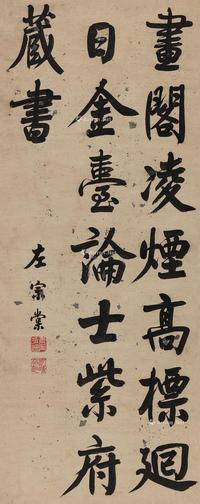 畫閣凌煙高標迴
日金臺論士紫府
藏書
左宗棠